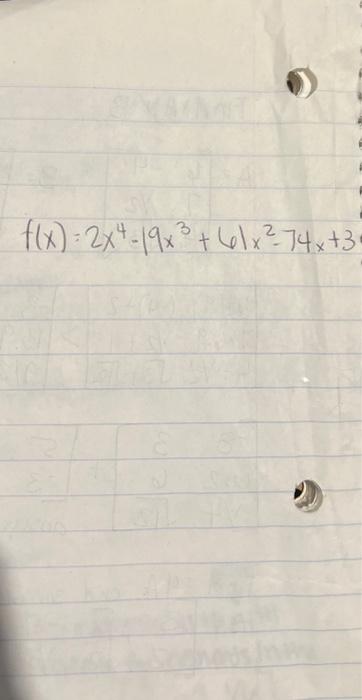 f(x) = 2x⁴ - 19x³ + 61x² - 74x + 3